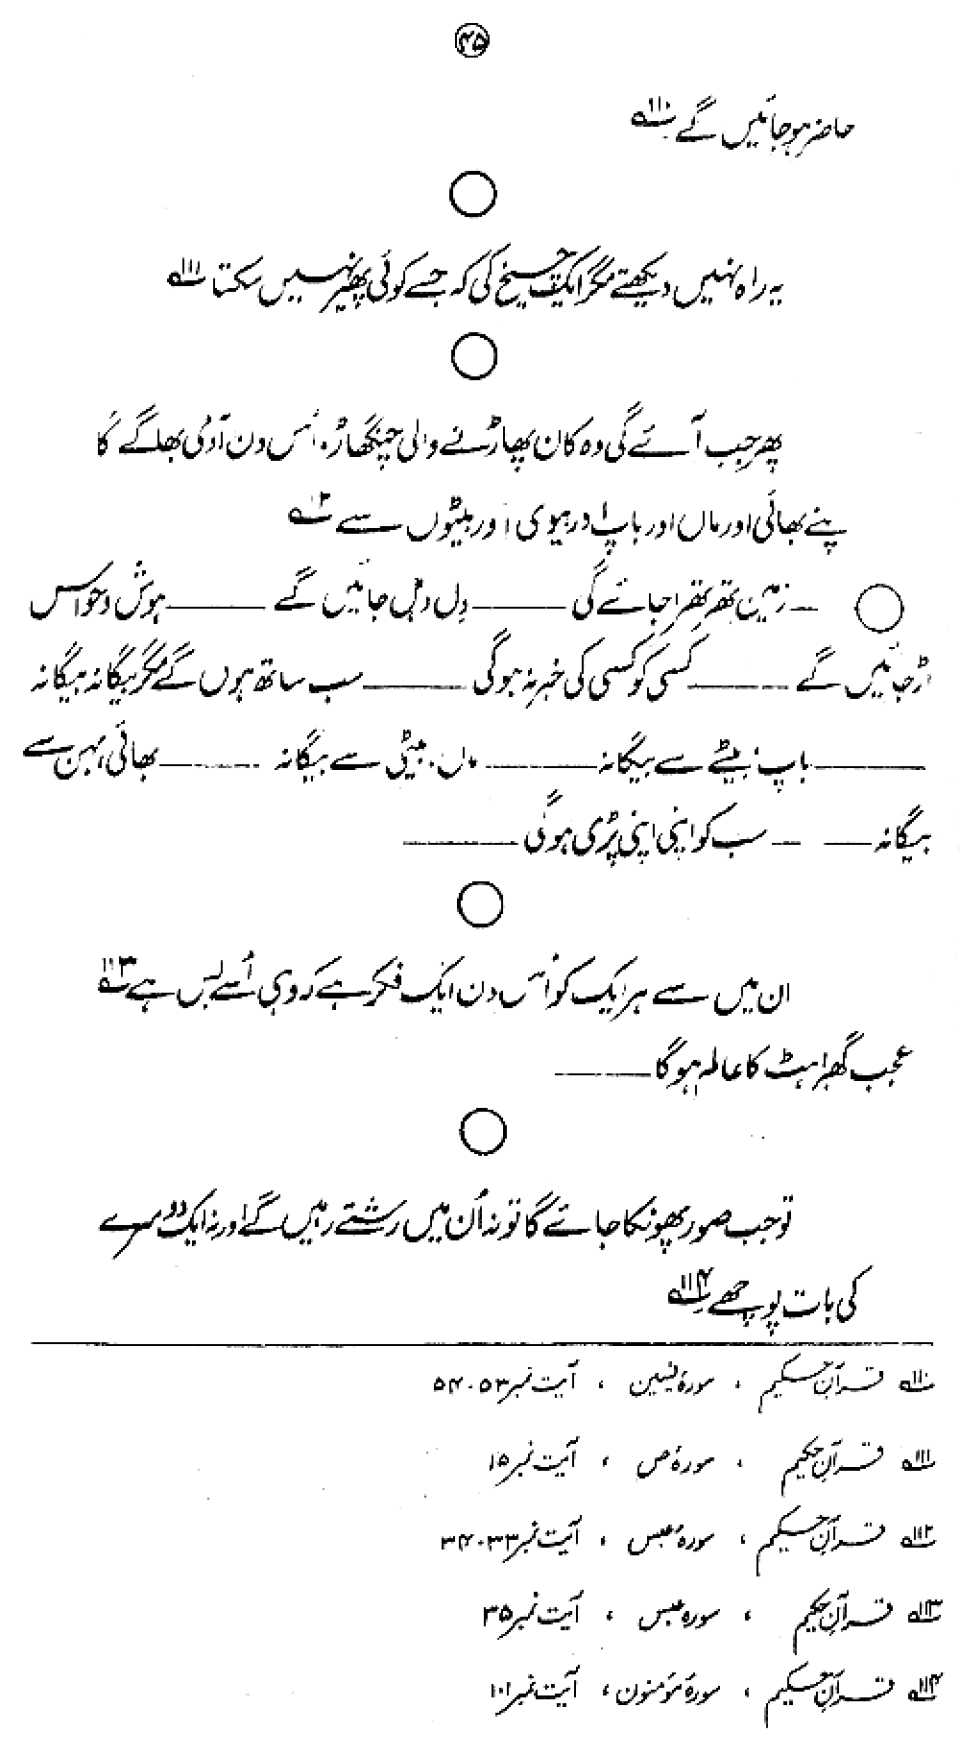 ۴۵
حاضر ہو جائیں گے ۱۱۰
یہ راہ نہیں دیکھتے مگر ایک چیخ کی کہ جسے کوئی پھیر نہیں سکتا ۱۱۱
پھر جب آئے گی وہ کان پھاڑنے والی چنگھاڑ، اُس دن آدمی بھاگے گا
پنے بھائی اور ماں اور باپ اور بیوی اور بیٹوں سے ۱۱۲
ــ زمین تھرتھرا جائے گی ــــ دل دہل جائیں گے ــــ ہوش و حواس
اڑ جائیں گے ــــ کسی کو کسی کی خبر نہ ہوگی ــــ سب ساتھ ہوں گے مگر بیگانہ بیگانہ
ــــ باپ بیٹے سے بیگانہ ــــ ماں، بیٹی سے بیگانہ ــــ بھائی، بہن سے
بیگانہ ــــ ــ سب کو اپنی اپنی پڑی ہوگی ــــ
ان میں سے ہر ایک کو اُس دن ایک فکر ہے کہ وہی اُسے بس ہے ۱۱۳
عجب گھبراہٹ کا عالم ہوگا ــــ
تو جب صور پھونکا جائے گا تو نہ اُن میں رشتے رہیں گے اور نہ ایک دوسرے
کی بات پوچھے ۱۱۴
۱۱۰ قرآن حکیم ، سورۂ یٰسین ، آیت نمبر ۵۳۔۵۴
۱۱۱ قرآن حکیم ، سورۂ ص ، آیت نمبر ۱۵
۱۱۲ قرآن حکیم ، سورۂ عبس ، آیت نمبر ۳۳۔۳۴
۱۱۳ قرآن حکیم ، سورہ عبس ، آیت نمبر ۳۵
۱۱۴ قرآن حکیم ، سورۂ مؤمنون ، آیت نمبر ۱۰۱